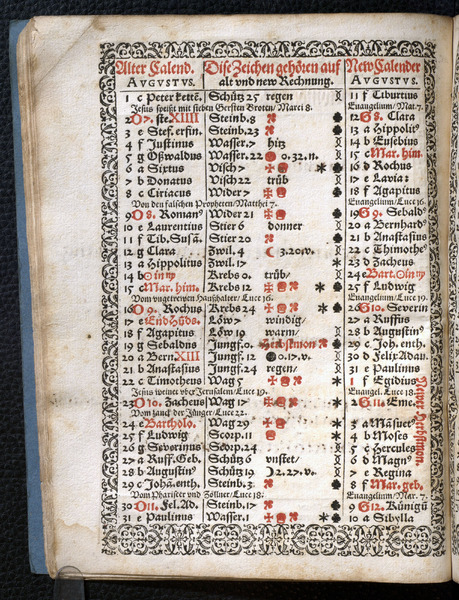 Alter Calend. Dise Zeichen gehören auf New Calender
AVGVSTVS. alt vnd new Rechnung. AVGVSTVS.
1 c Peter kettē. Schütz 25 regen 11 f Tiburtius
Jesus speißt mit sieben Gersten Broten/ Marci 8. Euangelium/Mat. 7.
2 O 7. ste. XIIII Steinb. 8 12 G 8. Clara
3 e Stef. erfin. Steinb. 23 13 a Hippolit⁹
4 f Justinus Wasser. 7 hitz 14 b Eusebius
5 g Oßwaldus Wasser. 22 0.32.n. 15 c Mar. him.
6 a Sixtus Visch 7 16 b Rochus
7 b Donatus Visch 22 trüb 17 e
8 c Ciriacus Wider 7 18 f Agapitus
Von den falschen Propheten/ Matthei 7. Euangelium/Luc. 16.
9 O 8. Roman⁹ Wider 21 19 G 9. Sebald⁹
10 e Laurentius Stier 6 donner 20 a Bernhard⁹
11 f Tib. Susā. Stier 20 21 b Anastasius
12 g Clara Zwil. 4 3.20.v. 22 c Thimothe⁹
13 a Hippolitus Zwil. 17 23 d Zacheus
14 b ☉ in ♍ Krebs 0. trüb/ 24 e Bart. ☉ in ♍
15 c Mar. him. Krebs 12 25 f Ludwig
Vom vngetrewen Haußhalter/ Luc. 16. Euangelium/Luc. 19.
16 O 9. Rochus Krebs 24 26 G 10. Severin
17 e End Hūds. Löw 7 windig/ 27 a Ruffus
18 f Agapitus Löw 19 warm/ 28 b Augustin⁹
19 g Sebaldus Jungf. 0 Herbstmon 29 c Joh. enth.
20 a Bern. XIII Jungf. 12 0.17.v. 30 d Felix Adau.
21 b Anastasius Jungf. 24 regen/ 31 e Paulinus
22 c Timotheus Wag 5 1 f Egidius
Jesus weinet vber Jerusalem/ Luc. 19. Euangel. Luc. 18.
23 O 10. Zacheus Wag 2 G 11. Eme.
Vom zanck der Jünger/ Luc. 22.
24 e Bartholo. Wag 29 3 a Māsuet⁹
25 f Ludwig Scorp. 11 4 b Moses
26 g Severinus Scorp. 24 5 c Hercules
27 a Ruff. Geb. Schütz 6 vnstet/ 6 b Magn⁹
28 b Augustin⁹ Schütz 19 2.27.v. 7 e Regina
29 c Joha. enth. Steinb. 3. 8 f Mar. geb.
Vom Phariseer vnd Zöllner/ Luc. 18. Euangelium/Mar. 7.
30 O 11. Fel. Ad. Steinb. 17 9 G 12. Künigū
31 e Paulinus Wasser. 1 10 a Sibylla